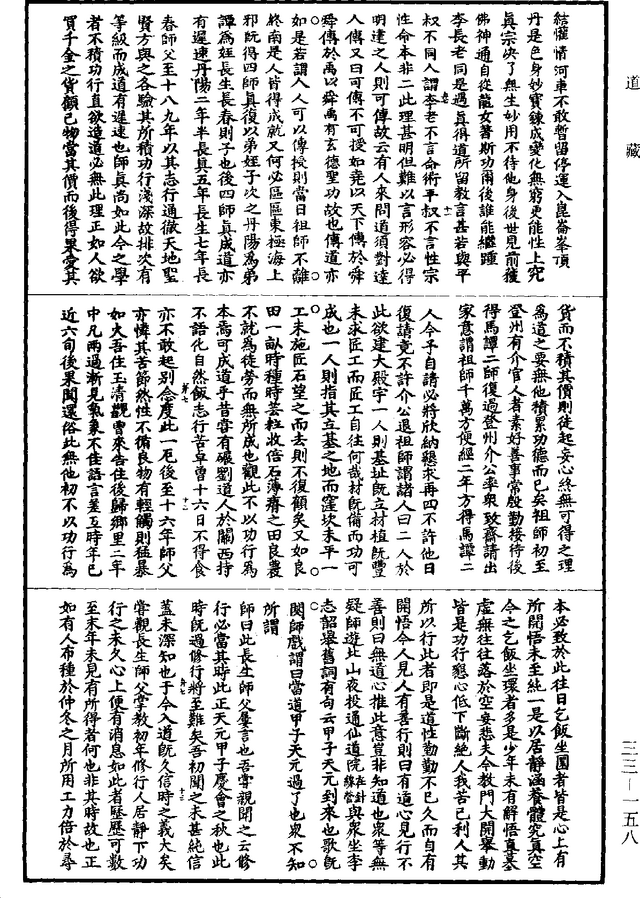 道藏
結懽情河車不敢暫留停運入崑崙峯頂
丹是色身妙寶鍊成變化無窮更能性上究
眞宗決了無生妙用不待他身後世見前獲
佛神通自從龍女著斯功爾後誰能繼踵
李長老同是過眞得道所留教言甚若與平
叔不同人謂李老不言命術平叔不言性宗
性命本非二此理甚明但難以言形容必得
明達之人則可傳故云有人來問道須對達
人傳又曰可傳不可授如堯以天下傳於舜
舜傳於禹以舜禹有玄德聖功故也傳道亦
如是若謂人人可以傳授則當日祖師不離
終南是人皆得成就又何必區區東極海上
邪既得四師眞復以弟姪子次之丹陽爲弟
譚爲姪長生長春則子也後四師眞成道亦
有遲速丹陽二年半長眞五年長生七年長
春師父至十八九年以其志行通徹天地聖
賢方與之各驗其所積功行淺深故排次有
等級而成道有遲速也師眞尚如此今之學
者不積功行直欲造道必無此理正如人欲
買千金之貨顧己物當其價而後得果愛其
貨而不積其價則徒起妄心終無可得之理
爲道之要無他積累功德而已矣祖師初至
登州有介官人者素好善事常殷勤接待後
得馬譚二師復過登州介公率衆致齋請出
家意謂祖師千萬方便經二年方得馬譚二
人今予自請必將欣納懇求再四不許他日
復請竟不許介公退祖師謂諸人曰二人於
此欲建大殿宇一人則基址既立材植既豐
未求匠工而匠工自往何哉材既備而功可
成也一人則指其立基之地而窪坎未平一
工未施匠石望之而去則不復顧矣又如良
田一畝時種時耘粒收倍石薄瘠之田良農
不就爲徒勞而無所成也觀此不以功行爲
本焉可成道乎昔嘗有碾劉道人於關西持
不語化自然飯志行苦卓曾十六日不得食
亦不敢起別念度此一厄後至十六年師父
亦憐其苦節然性不循良物有輕觸則猛暴
如火吾住玉清觀曹來告住後歸鄉里二年
中凡兩過漸見氣象不佳語言差互時年已
近六旬後果聞還俗此無他初不以功行爲
本必致於此往日乞飯坐圜者皆是心上有
所開悟未至純一是以居靜涵養體究眞空
今之乞飯坐環者多是少年未有解悟直墓
虛無往往落於空妄悲夫今教門大開舉動
皆是功行懇心低下斷絶人我苦己利人其
所以行此者即是道性勤勤不已久而自有
開悟今人見人有善行則曰有道心見行不
善則曰無道心推此意豈非知道也衆等無
疑師遊此山夜投通仙道院與衆坐李
志韶舉舊詞有句云甲子天元到來也歌既
闋師戲謂曰當道甲子天元過了也衆不知
所謂
師曰此長生師父屢言也吾嘗親聞之云修
行必當其時此正天元甲子慶會之秋也此
時既過修行將至難矣吾初聞之未甚純信
蓋未深知也于今入道既久信時之義大矣
嘗觀長生師父掌教初年修行人居靜下功
行之未久心上便有消息如此者歷歷可數
至末年未見有所得者何也非其時故也正
如有人布種於仲冬之月所用工力倍於尋
三三—一五八